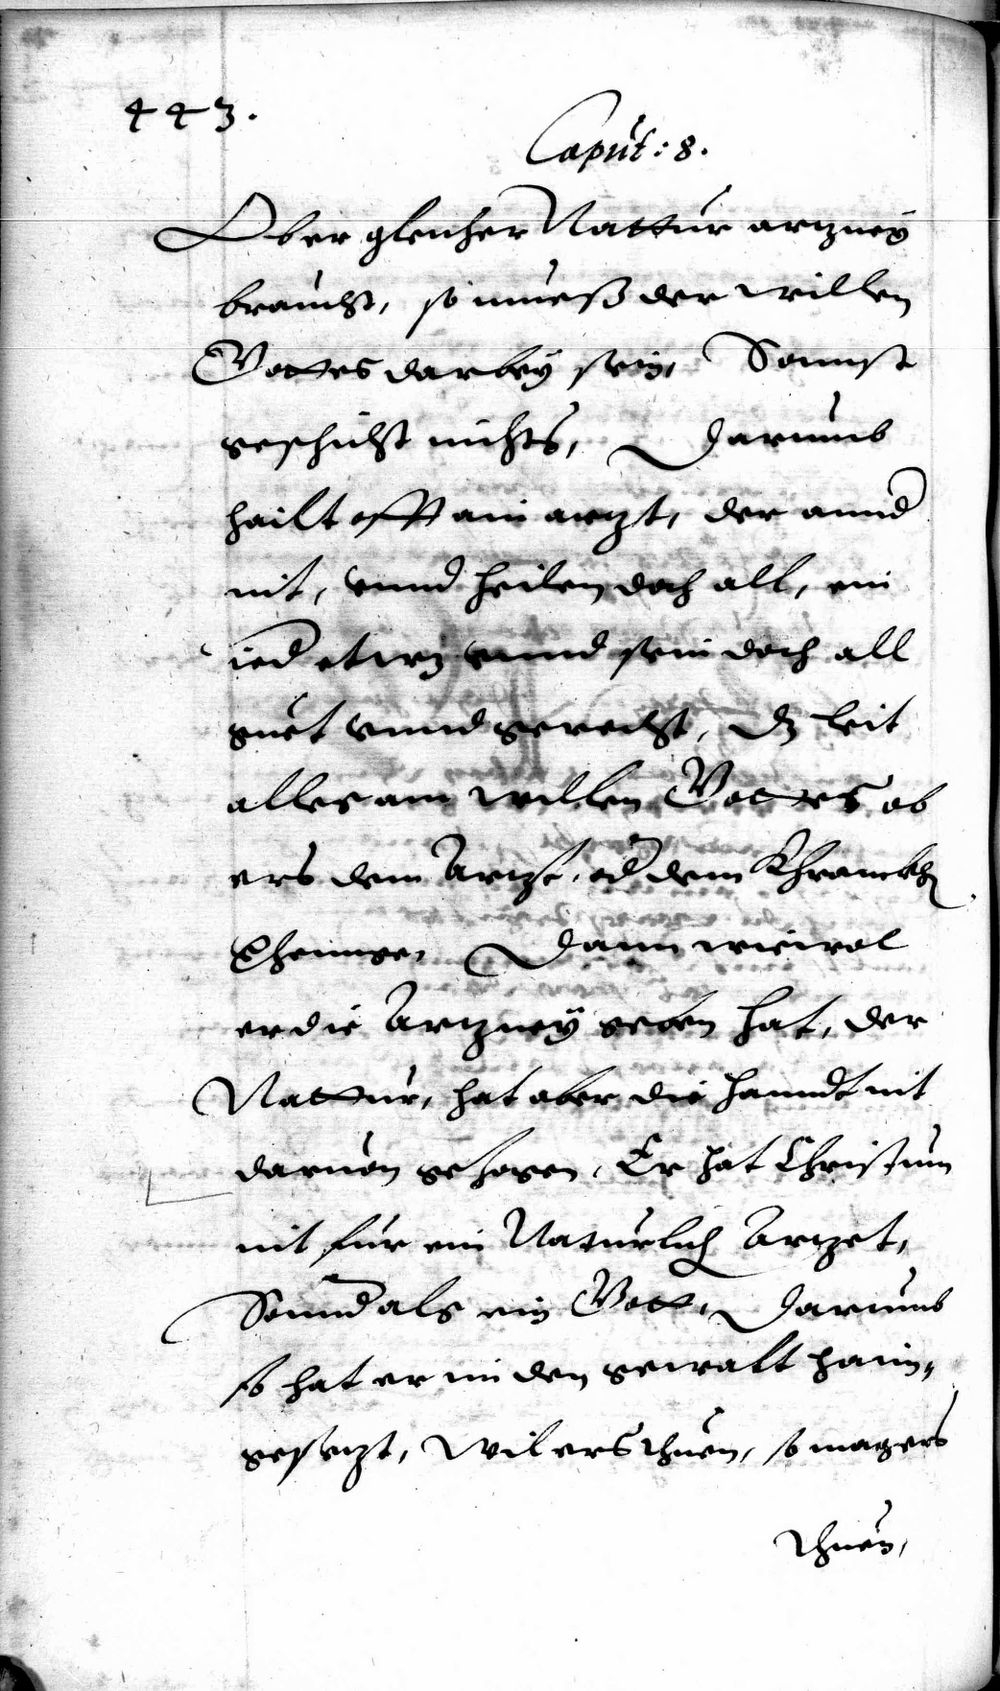 443.
Caput: 8.
Ober gleicher Nattur artzneÿ
braucht, so mueß der willen
Gottes darbeÿ sein, Sounst
geschicht nichts, Darumb
hailt offt ain artzt, der annd
nit, vnnd heilen doch all, ein
ied etwz vnnd sein doch all
guet vnnd gerecht, dz leit
alles am willen Gottes ob
ers dem Artzt, od dem Khranckh
Dann wiewol
er die Artzneÿ geben hat, der
Nattur, hat aber die hanndt nit
daruon gezogen, Er hat Christum
nit für ein Natürlich Artzet,
Sonnd als ein Gott, Darumb
so hat er in den gewalt haim„
gesetzt, Wil ers thuen, so mag ers
thuen,